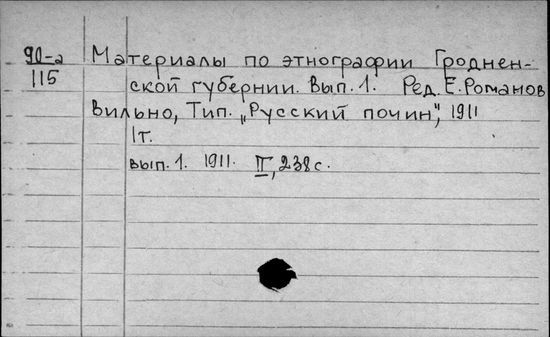 90-а
115
Материалы по этнографии Гроднен-
ской губернии. Вып. 1. Ред. Е. Романов
Вильно, Тип. „Русский почин", 1911
1т.
вып. 1. 1911. II, 238 с.